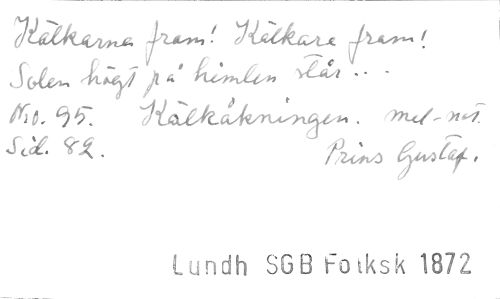 Kälkarna fram! Kälkare fram!
Solen högt på himlen står...
No. 95. Kälkåkningen. mel-not.
Sid. 82. Prins Gustaf.
Lundh SGB Folksk 1872